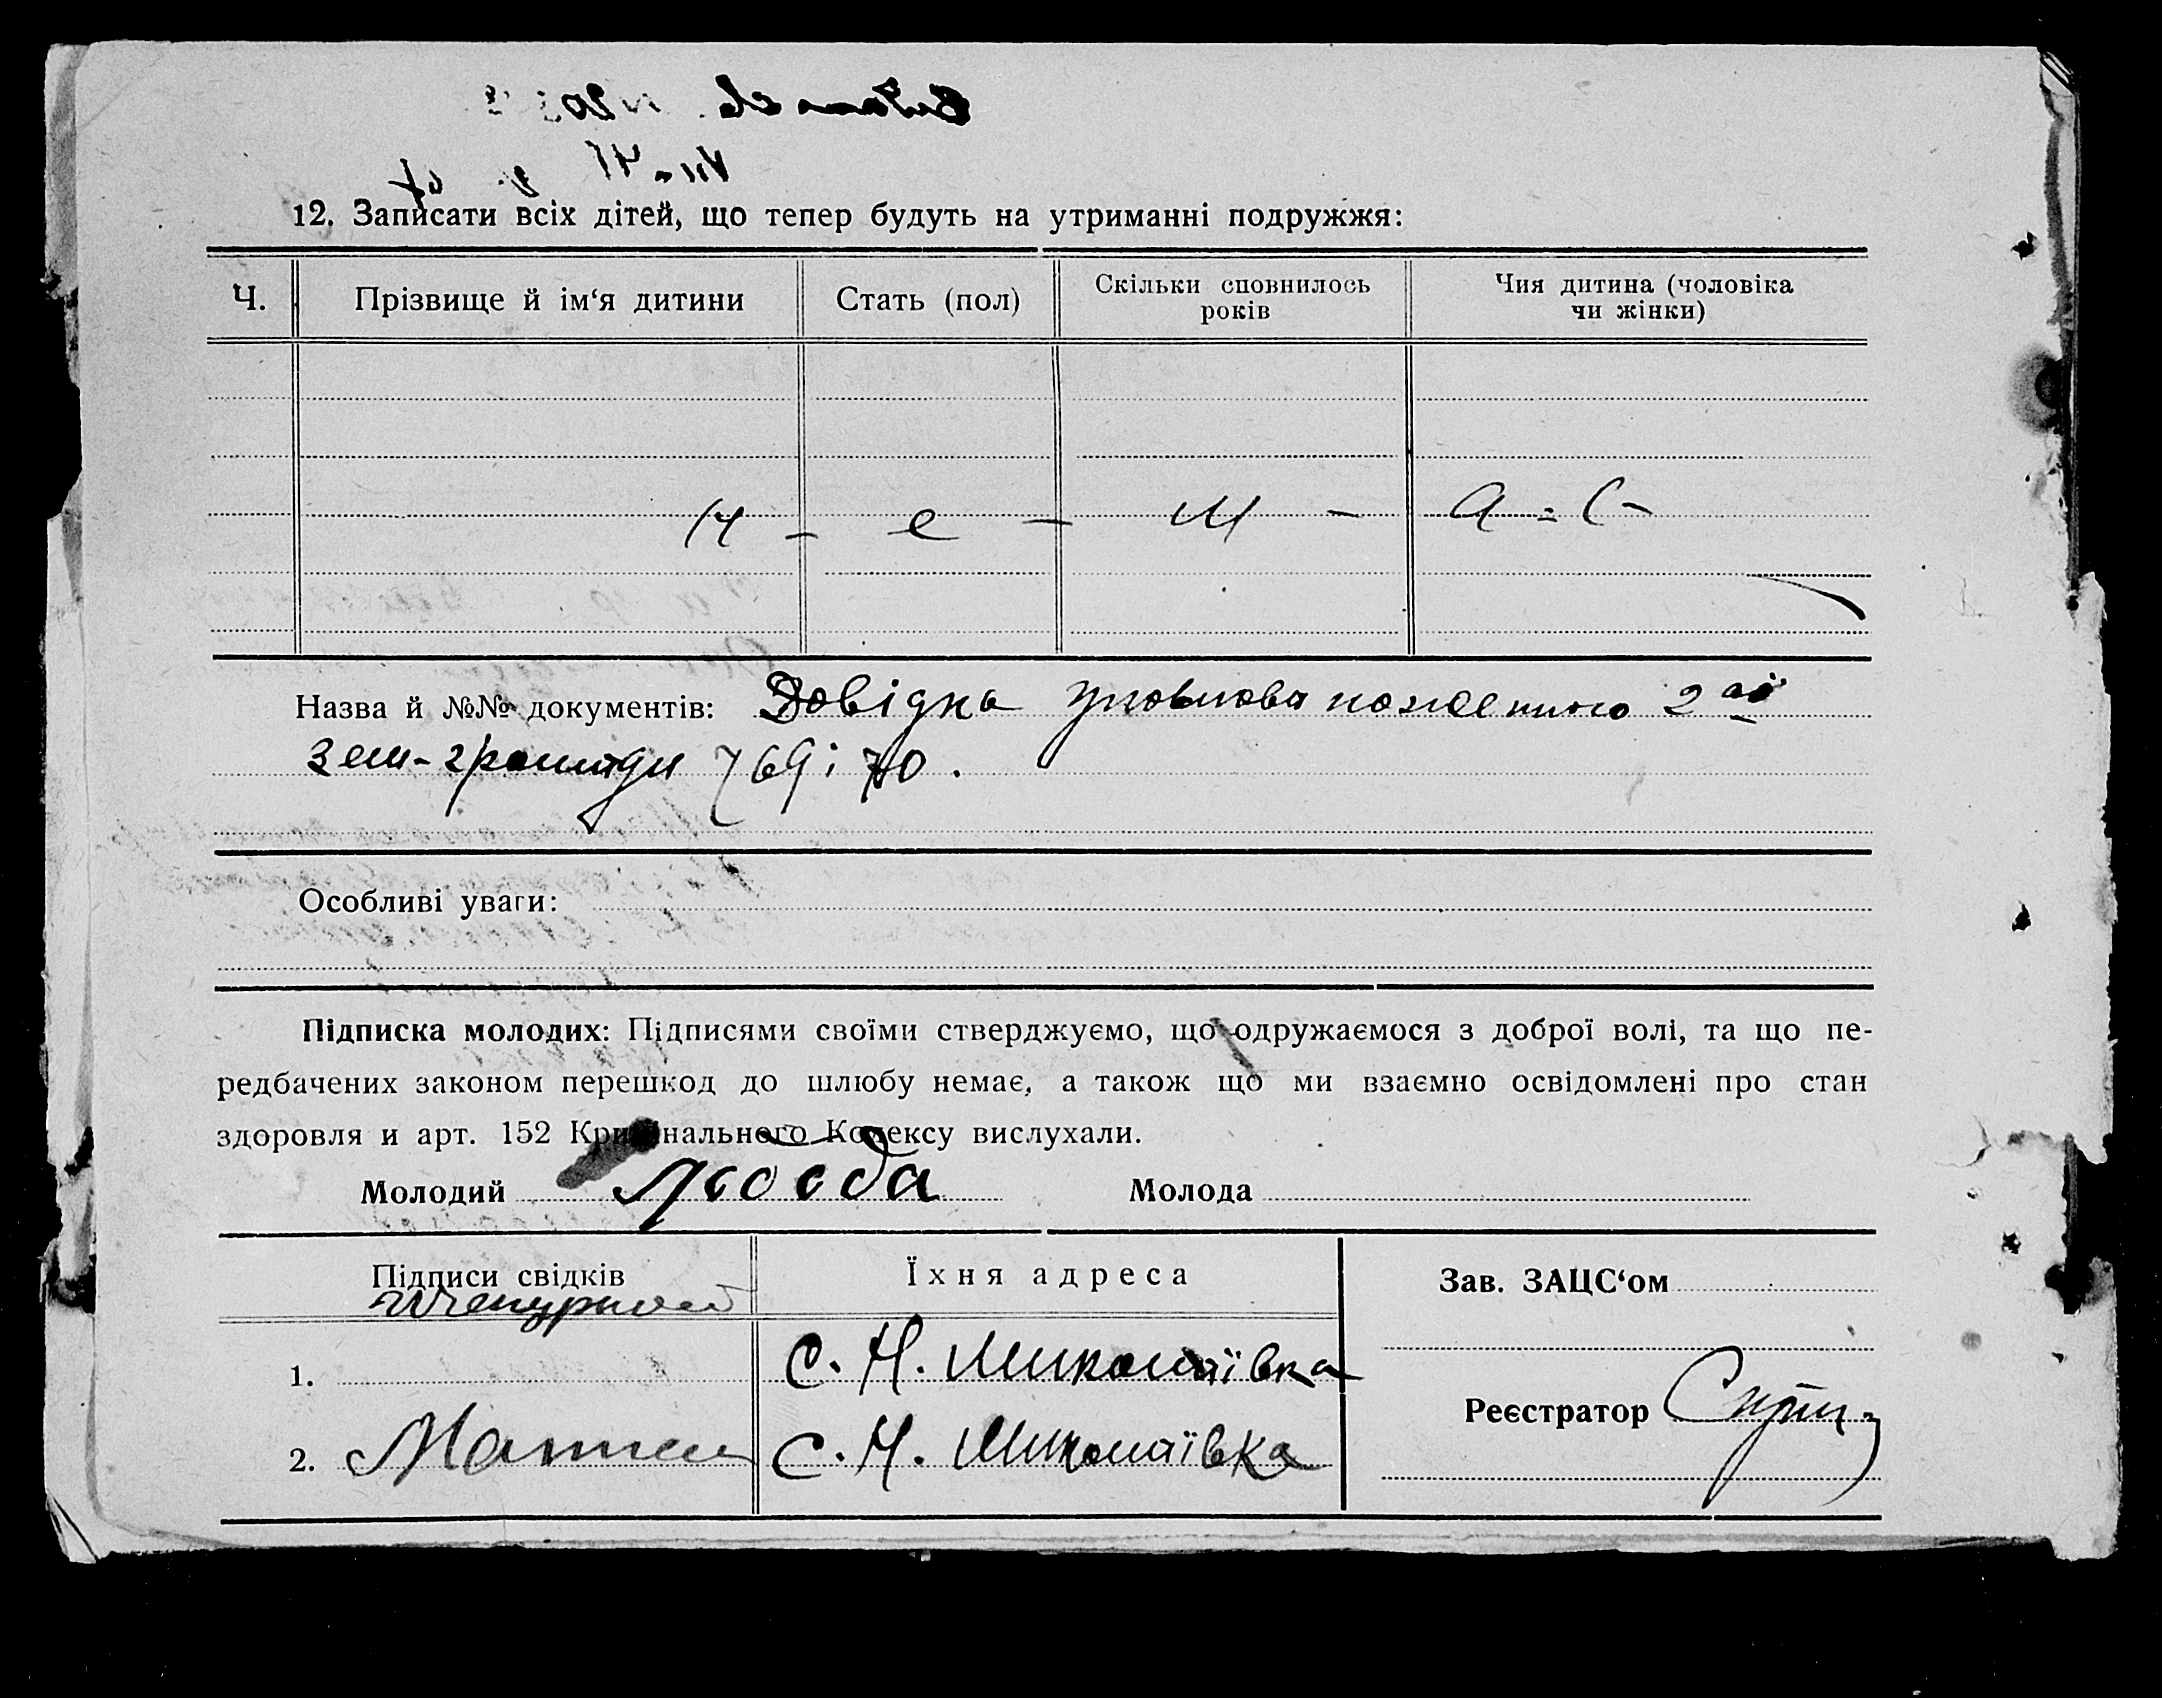 12. Записати всіх дітей, що тепер будуть на утриманні подружжя:
Ч. Прізвище й ім‘я дитини Стать (пол) Скільки сповнилось років Чия дитина (чоловіка чи жінки)
Н - е - м - а - є -
Назва й №№ документів: Довідка 2ої
зем-громади 769 і 70.
Особливі уваги:
Підписка молодих: Підписями своїми стверджуємо, що одружаємося з доброї волі, та що пе-
редбачених законом перешкод до шлюбу немає, а також що ми взаємно освідомлені про стан
здоровля и арт. 152 Кримінального Кодексу вислухали.
Молодий Лобода Молода
Підписи свідків Їхня адреса Зав. ЗАЦС‘ом
1. С. Н. Миколаївка
Реєстратор
2. С. Н. Миколаївка